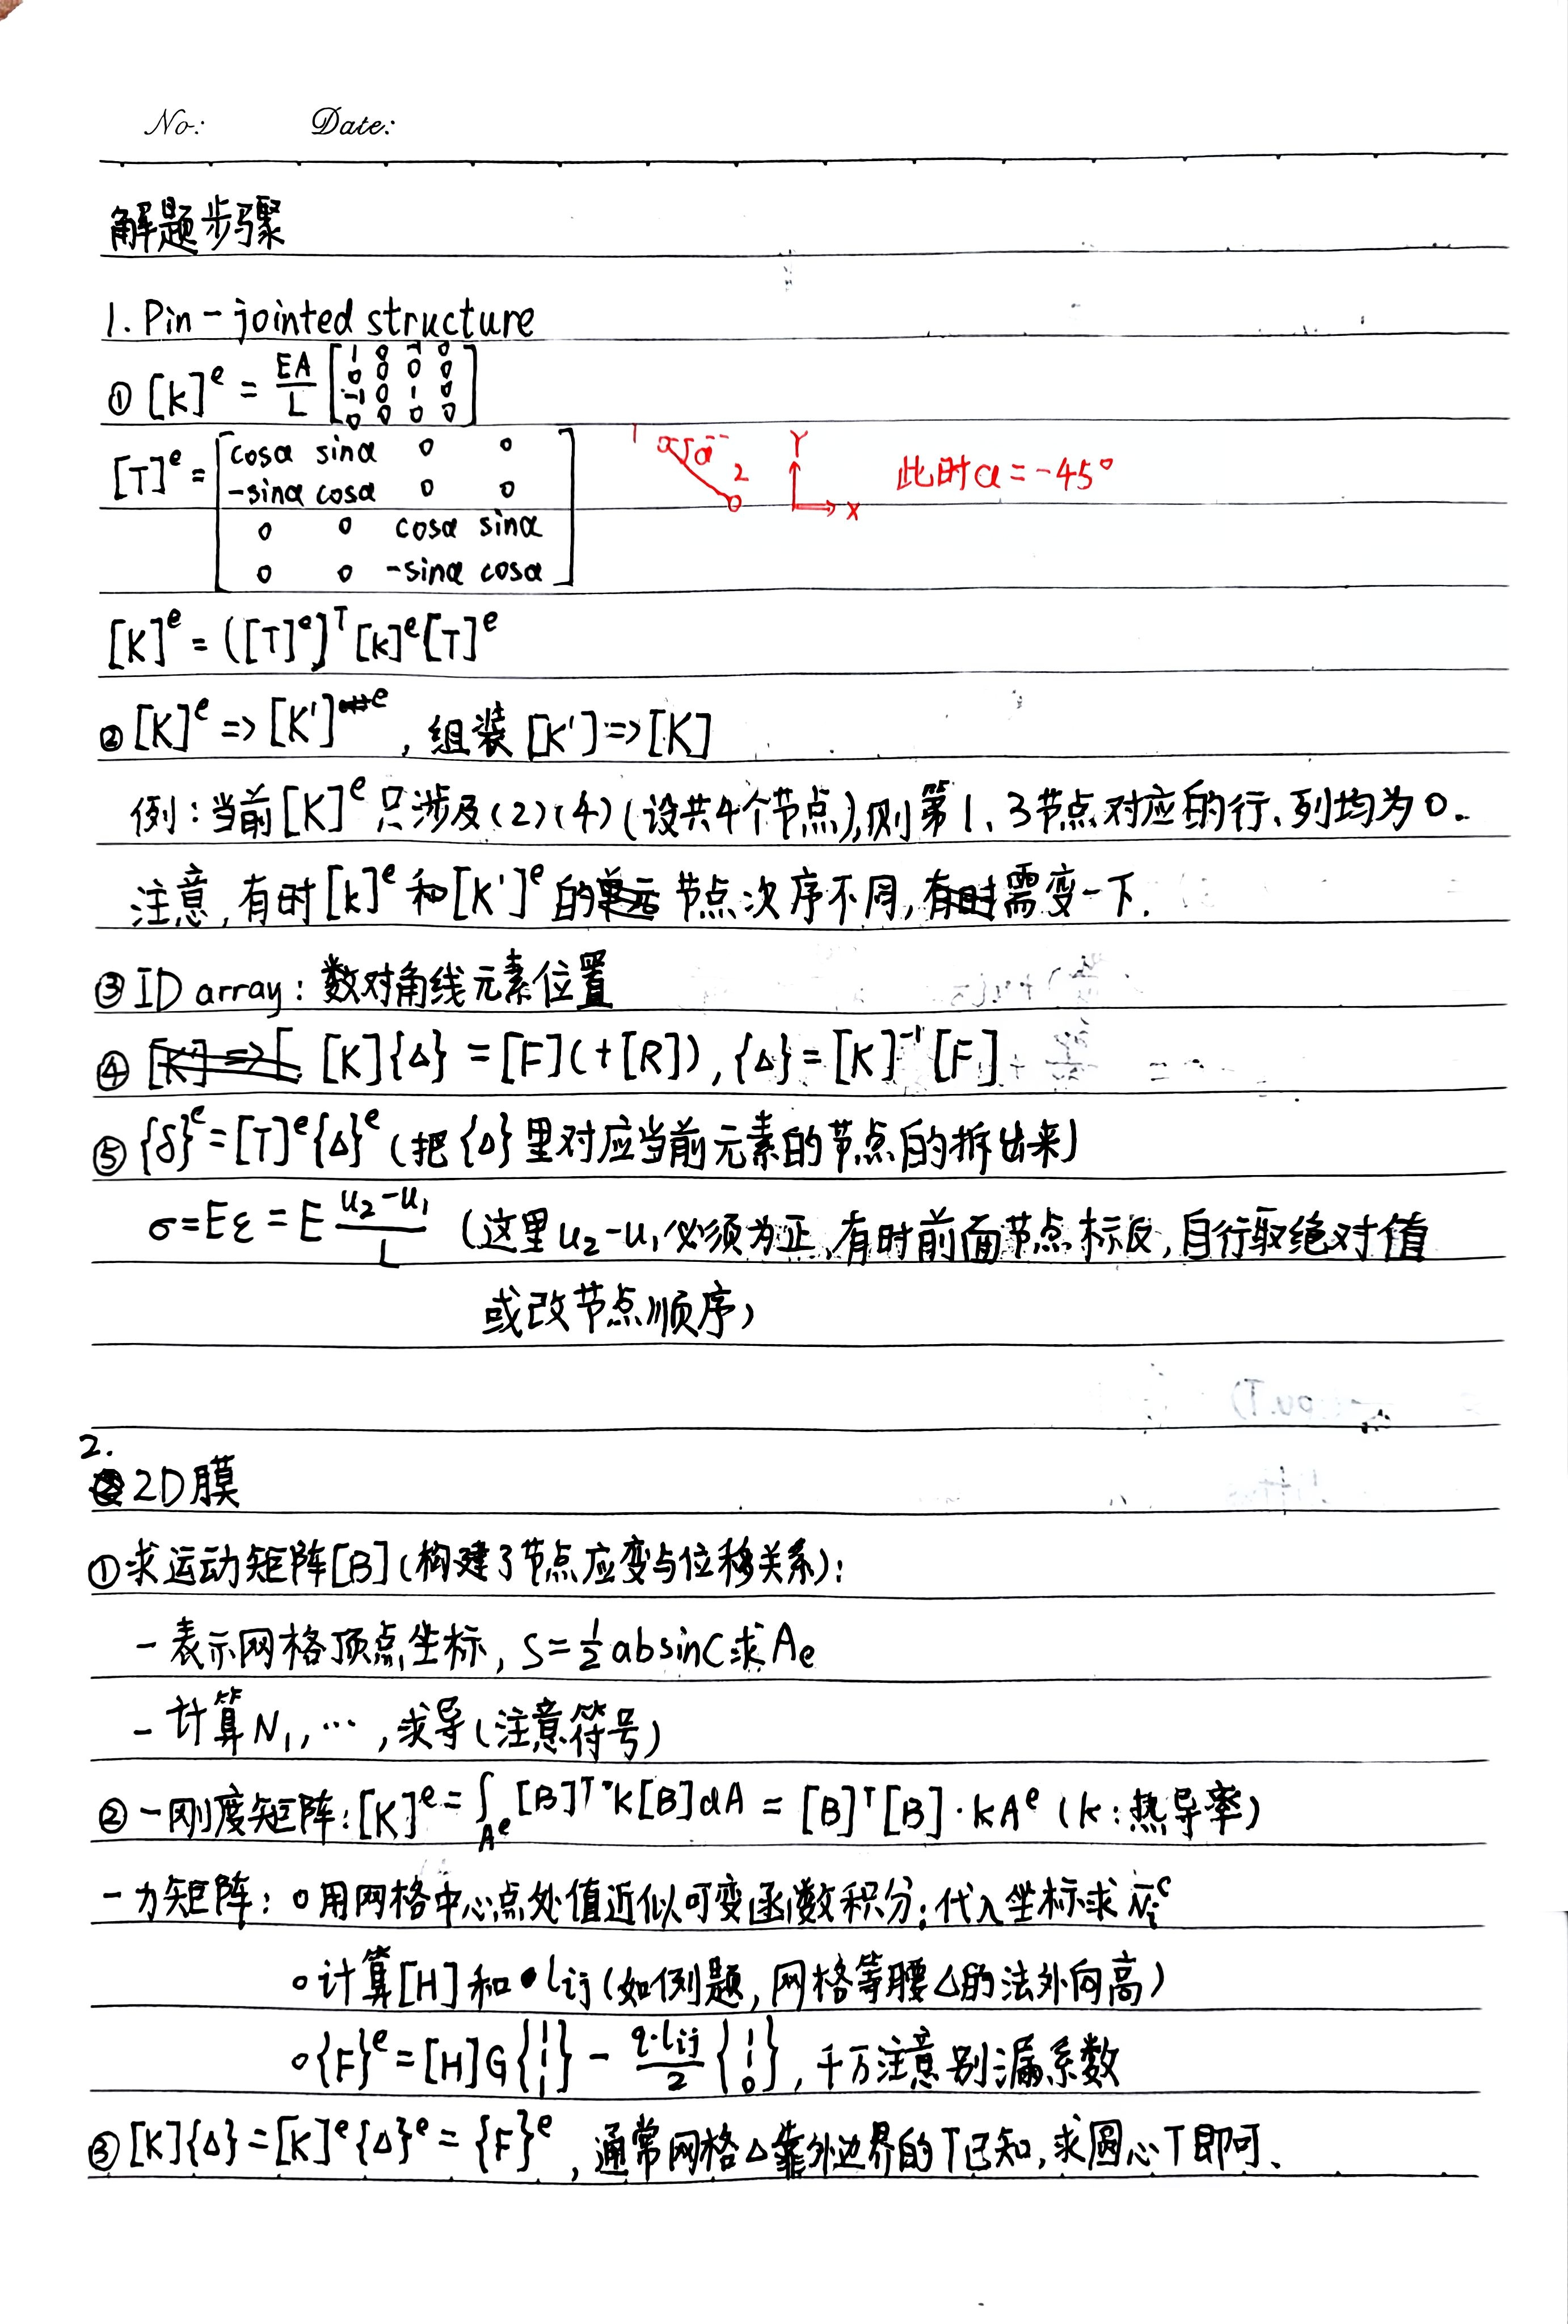 No: Date:
解题步骤
1. Pin-jointed structure
① [k]^e = EA/L [1 0 -1 0; 0 0 0 0; -1 0 1 0; 0 0 0 0]
[T]^e = [cosα sinα 0 0; -sinα cosα 0 0; 0 0 cosα sinα; 0 0 -sinα cosα] 1 α 2 Y X 此时α=-45°
[K]^e = ([T]^e)^T [k]^e [T]^e
② [K]^e => [K']^e, 组装 [K'] => [K]
例:当前[K]^e只涉及(2)(4)(设共4个节点),则第1、3节点对应的行、列均为0.
注意,有时[k]^e和[K']^e的节点次序不同,需变一下.
③ ID array: 数对角线元素位置
④ [K]{Δ} = [F](+[R]), {Δ} = [K]^-1 [F]
⑤ {δ}^e = [T]^e{Δ}^e (把{Δ}里对应当前元素的节点的拆出来)
σ = Eε = E (u₂-u₁)/L (这里u₂-u₁必须为正,有时前面节点标反,自行取绝对值
或改节点顺序)
2.
2D膜
① 求运动矩阵[B](构建了节点应变与位移关系):
- 表示网格顶点坐标, S=½absinC求Ae
- 计算N₁, …, 求导(注意符号)
② - 刚度矩阵: [K]^e = ∫_{A^e} [B]^T·k[B]dA = [B]^T[B]·kA^e (k:热导率)
- 力矩阵: ○用网格中心点处值近似可变函数积分;代入坐标求 N̄ᵢ^e
○计算[H]和lij(如例题,网格等腰△的法外向高)
○{F}^e = [H]G{1 1 1} - q·lij/2 {1 1 0}, 千万注意别漏系数
③ [K]{Δ} = [K]^e{Δ}^e = {F}^e, 通常网格△靠外边界的T已知,求圆心T即可.